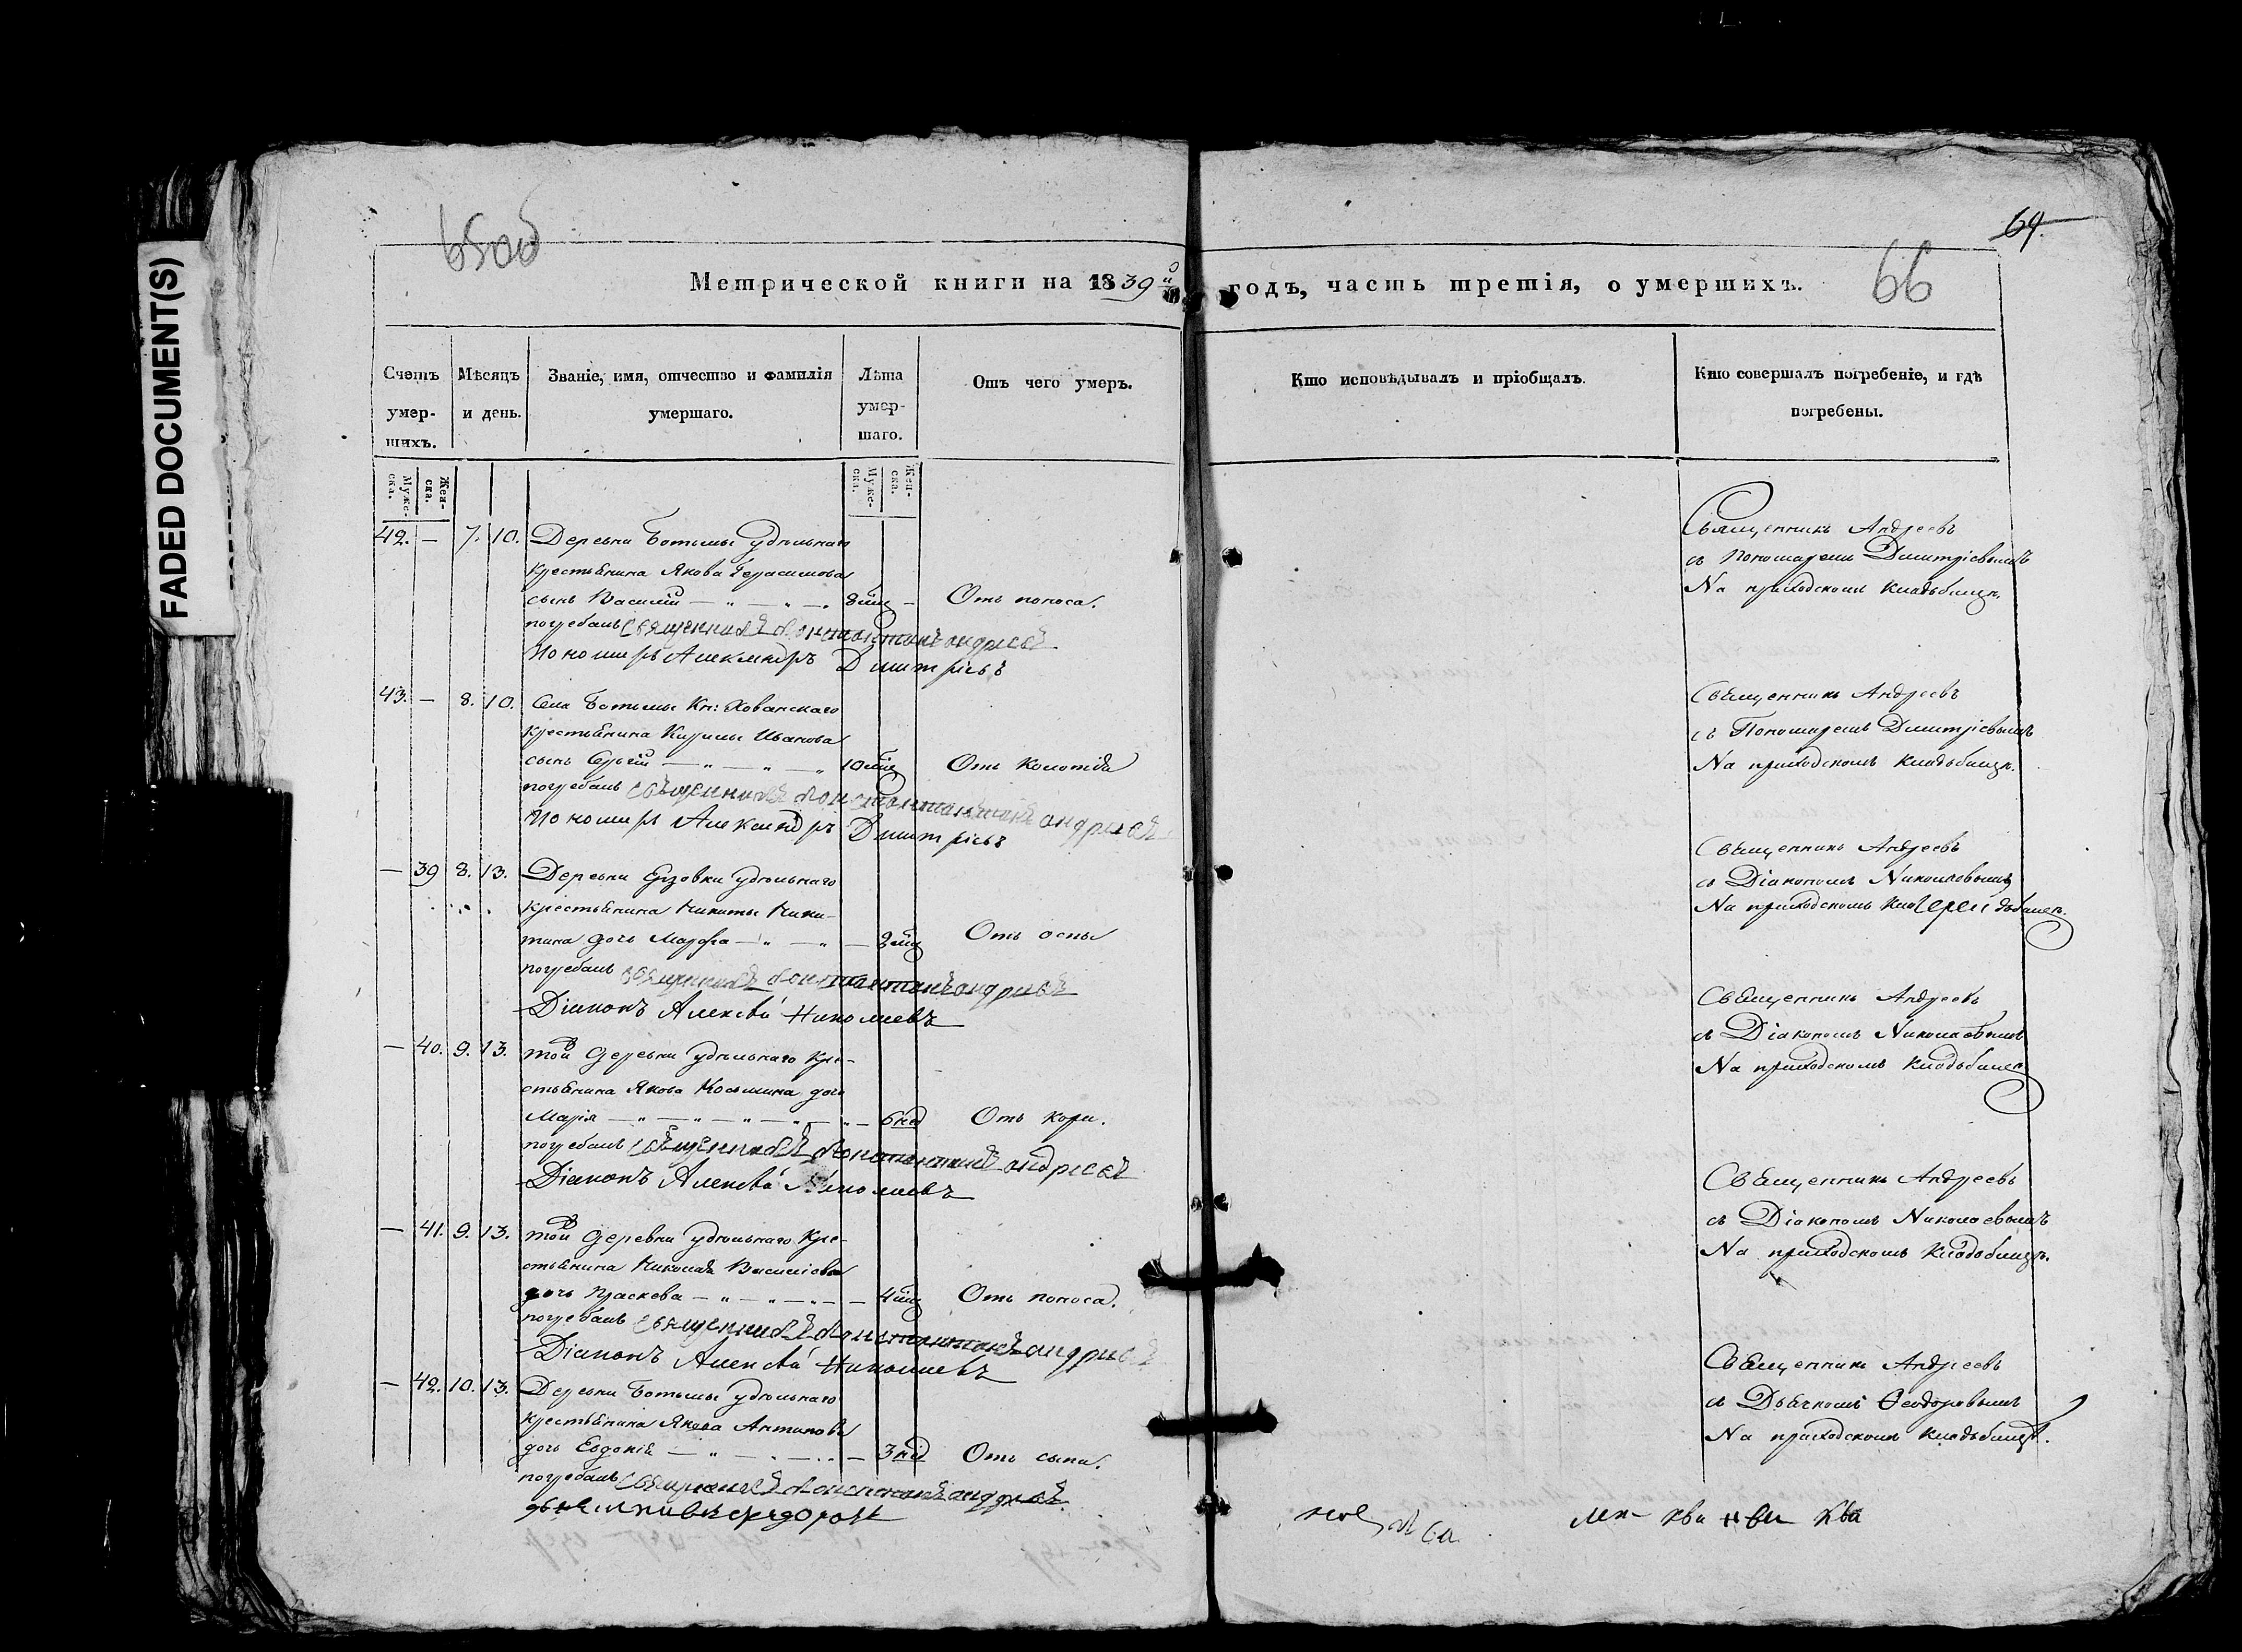 FADED DOCUMENT(S)
65об
64.
66
Метрической книги на 1839й годъ, часть третія, о умершихъ.
Счетъ умер-шихъ.
Мѣсяцъ и день.
Званіе, имя, отчество и фамилія умершаго.
Лѣта умер-шаго.
Отъ чего умеръ.
Кто исповѣдывалъ и пріобщалъ.
Кто совершалъ погребеніе, и гдѣ погребены.
Муже-ска.
Жен-ска.
Муже-ска.
Жен-ска.
42. — 7. 10. Деревни Ботьмы удѣльнаго
крестьянина Якова Герасимова
сынъ Василій — „ — „ — 8мѣц — Отъ поноса.
погребалъ священникъ Константинъ Андреевъ
Пономарь Александръ Дмитріевъ
Священникъ Андреевъ
съ Пономаремъ Дмитріевымъ
На приходскомъ кладбищѣ.
43. — 8. 10. Села Ботьмы Кн: Хованскаго
крестьянина Кирилы Иванова
сынъ Сергій — „ — „ — „ 10мѣц Отъ
погребалъ священникъ Константинъ Андреевъ
Пономарь Александръ Дмитріевъ
Священникъ Андреевъ
съ Пономаремъ Дмитріевымъ
На приходскомъ кладбищѣ.
— 39 8. 13. Деревни Ерзовки удѣльнаго
крестьянина Никиты Ники-
тина дочь Марфа — „ — „ — мѣц Отъ оспы
погребалъ священникъ Константинъ Андреевъ
Діаконъ Алексѣй Николаевъ
Священникъ Андреевъ
съ Діакономъ Николаевымъ
На приходскомъ
— 40. 9. 13. той деревни удѣльнаго кре-
стьянина Якова Косьмина дочь
Марія — „ — „ — „ — „ — 6нед Отъ кори.
погребалъ священникъ Константинъ Андреевъ
Діаконъ Алексѣй Николаевъ
Священникъ Андреевъ
съ Діакономъ Николаевымъ
На приходскомъ кладбищѣ
— 41. 9. 13. той деревни удѣльнаго кре-
стьянина Николая Василіева
дочь Праскева — „ — „ — „ — 4мѣц Отъ поноса.
погребалъ священникъ Константинъ Андреевъ
Діаконъ Алексѣй Николаевъ
Священникъ Андреевъ
съ Діакономъ Николаевымъ
На приходскомъ кладбищѣ.
— 42. 10. 13. Деревни Ботьмы удѣльнаго
крестьянина Якова Антипова
дочь Евдокія — „ — „ — 3нед Отъ сыпи.
погребалъ священникъ Константинъ Андреевъ
Священникъ Андреевъ
съ Дьячкомъ Ѳеодоровымъ
На приходскомъ кладбищѣ.